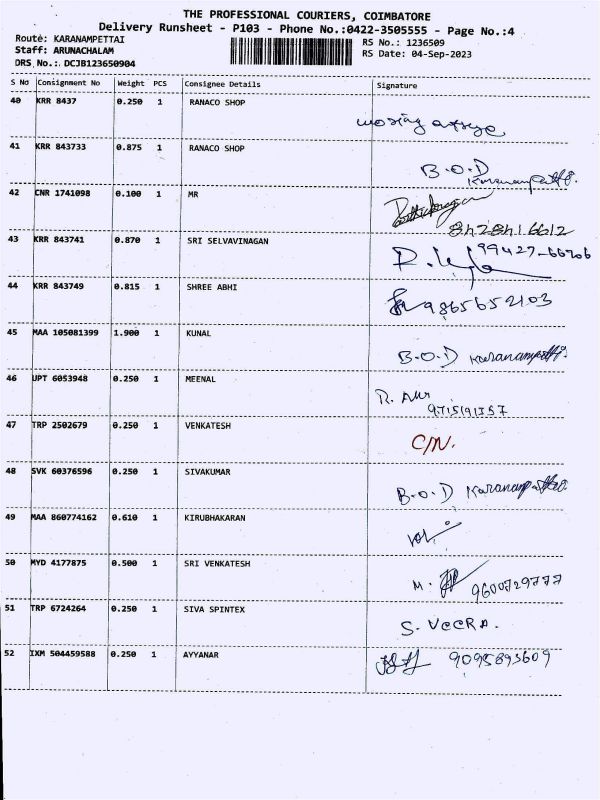 THE PROFESSIONAL COURIERS, COIMBATORE
Delivery Runsheet - P103 - Phone No.:0422-3505555 - Page No.:4
Route: KARANAMPETTAI
RS No.: 1236509
Staff: ARUNACHALAM
RS Date: 04-Sep-2023
DRS No.: DCJB123650904
S No Consignment No Weight PCS Consignee Details Signature
40 KRR 8437 0.250 1 RANACO SHOP
41 KRR 843733 0.875 1 RANACO SHOP
B.O.D
42 CNR 1741098 0.100 1 MR
8428416612
43 KRR 843741 0.870 1 SRI SELVAVINAGAN
99427-66706
44 KRR 843749 0.815 1 SHREE ABHI
9865652103
45 MAA 105081399 1.900 1 KUNAL
B.O.D
46 UPT 6053948 0.250 1 MEENAL
R.
47 TRP 2502679 0.250 1 VENKATESH
C/N.
48 SVK 60376596 0.250 1 SIVAKUMAR
B.O.D
49 MAA 860774162 0.610 1 KIRUBHAKARAN
50 MYD 4177875 0.500 1 SRI VENKATESH
M. 9600729777
51 TRP 6724264 0.250 1 SIVA SPINTEX
S. VEERA.
52 IXM 504459588 0.250 1 AYYANAR
9095893609